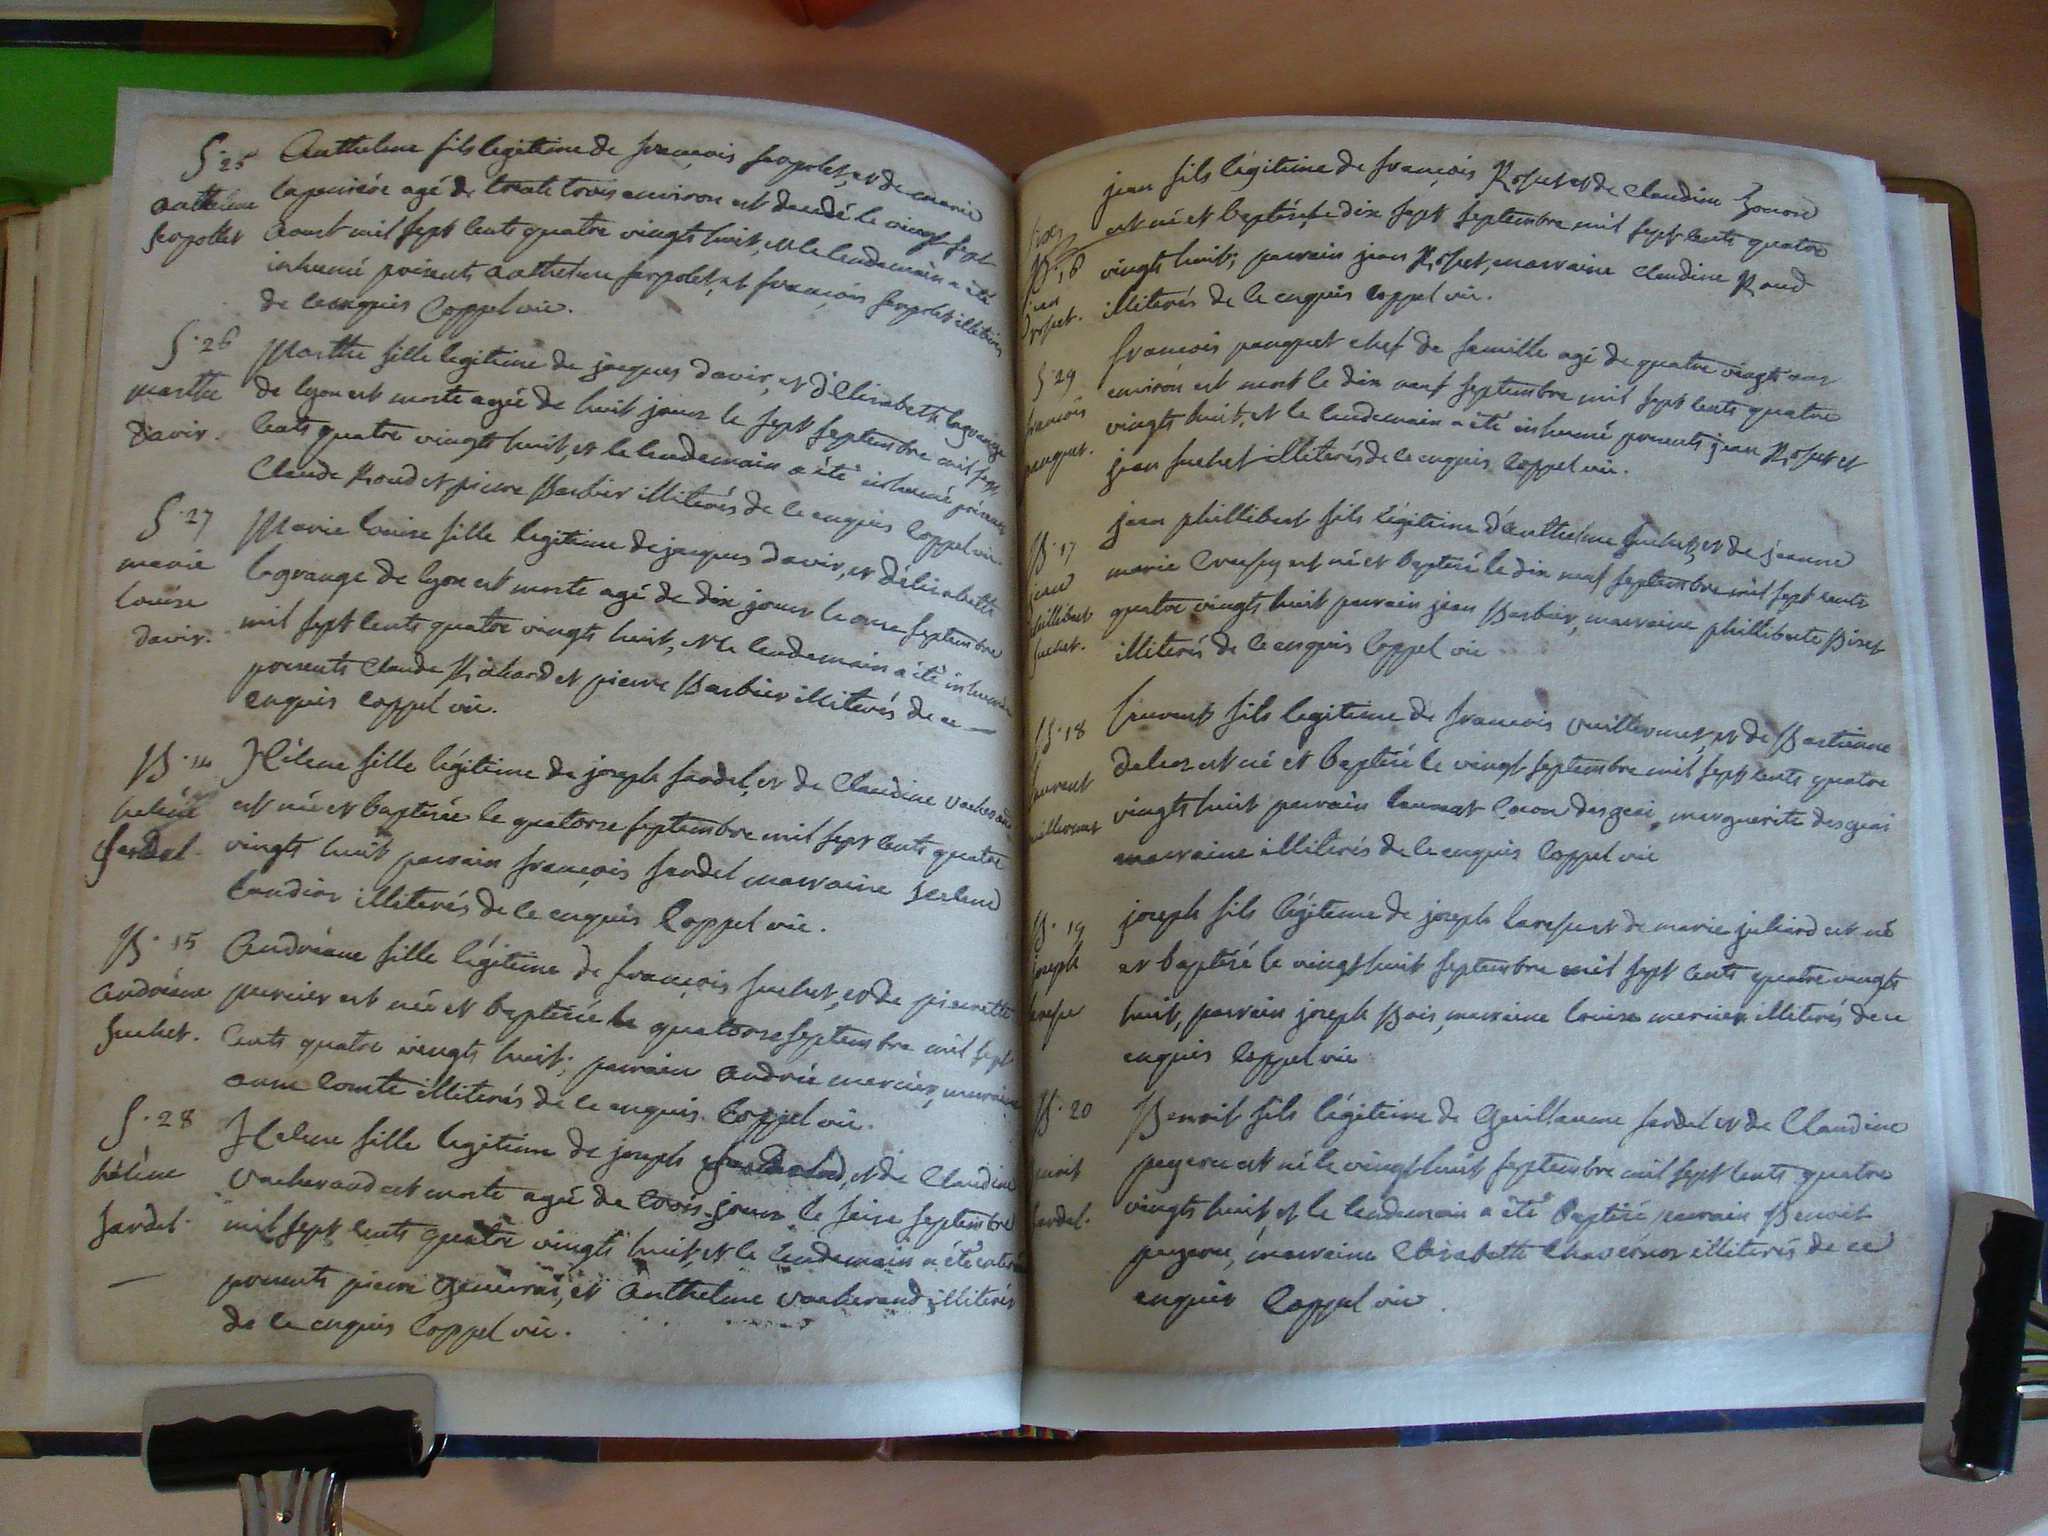 S. 25
anthelme
serpollet
Anthelme fils legitime de françois serpolet, et de marie
lapeniere agé de trente trois environ est decedé le vingt sept
aoust mil sept cents quatre vingts huit, et le lendemain a été
inhumé présents anthelme serpolet, et françois serpolet illiterés
de ce enquis Coppel vic.
S. 26
marthe
davir.
Marthe fille legitime de jacques davir, et d'Elisabeth lagrange
de lyon est morte agée de huit jours le sept septembre mil sept
cents quatre vingts huit, et le lendemain a été inhumé présents
Claude Roud et pierre Barbier illiterés de ce enquis Coppel vic.
S. 27
marie
louise
davir.
Marie louise fille legitime de jacques davir, et d'élisabeth
lagrange de lyon est morte agé de dix jours le onze septembre
mil sept cents quatre vingts huit, et le lendemain a été inhumée
presents Claude Richard et pierre Barbier illiterés de ce
enquis Coppel vic.
B. 14
heléne
Sardel
Hélene fille légitime de joseph Sardel, et de Claudine vacherand
est née et baptisée le quatorze septembre mil sept cents quatre
vingts huit parrain françois Sardel marraine helene
illiterés de ce enquis Coppel vic.
B. 15
andréane
suchet.
Andréane fille légitime de françois suchet, et de pierrette
mercier est née et baptisée le quatorze septembre mil sept
cents quatre vingts huit; parrain andré mercier, marraine
anne Comte illiterés de ce enquis. Coppel vic.
S. 28
hélène
Sardel.
Helene fille legitime de joseph et de Claudine
vacherand est morte agée de trois jours le seize septembre
mil sept cents quatre vingts huit, et le lendemain a été enterrée
presents pierre et Anthelme vacherand illiterés
de ce enquis Coppel vic.
B. 16
jean
rosset.
jean fils légitime de françois Rosset et de Claudine
est né et baptisé le dix sept septembre mil sept cents quatre
vingts huit; parrain jean Rosset, marraine Claudine Roud
illiterés de ce enquis Coppel vic.
S. 29
françois
panquet.
françois panquet chef de famille agé de quatre vingts ans
environ est mort le dix neuf septembre mil sept cents quatre
vingts huit, et le lendemain a été inhumé presents jean Rosset et
jean suchet illiterés de ce enquis Coppel vic.
B. 17
jean
phillibert
suchet.
jean phillibert fils légitime d'anthelme suchet, et de jeanne
marie est né et baptisé le dix neuf septembre mil sept cents
quatre vingts huit parrain jean Barbier, marraine philliberte
illiterés de ce enquis Coppel vic
B. 18
laurent
vuillermet
laurent fils legitime de françois vuillermet, et de Bastienne
est né et baptisé le vingt septembre mil sept cents quatre
vingts huit parrain laurent marguerite
marraine illiterés de ce enquis Coppel vic
B. 19
joseph
joseph fils légitime de joseph et de marie juliard est né
et baptisé le vingt huit septembre mil sept cents quatre vingts
huit, parrain joseph Bois, marraine louise mercier illiterés de ce
enquis Coppel vic
B. 20
benoit
sardel.
Benoit fils légitime de Guillaume sardel et de Claudine
payerne est né le vingt huit septembre mil sept cents quatre
vingts huit et le lendemain a été baptisé parrain Benoit
payerne, marraine Elisabeth illiterés de ce
enquis Coppel vic.